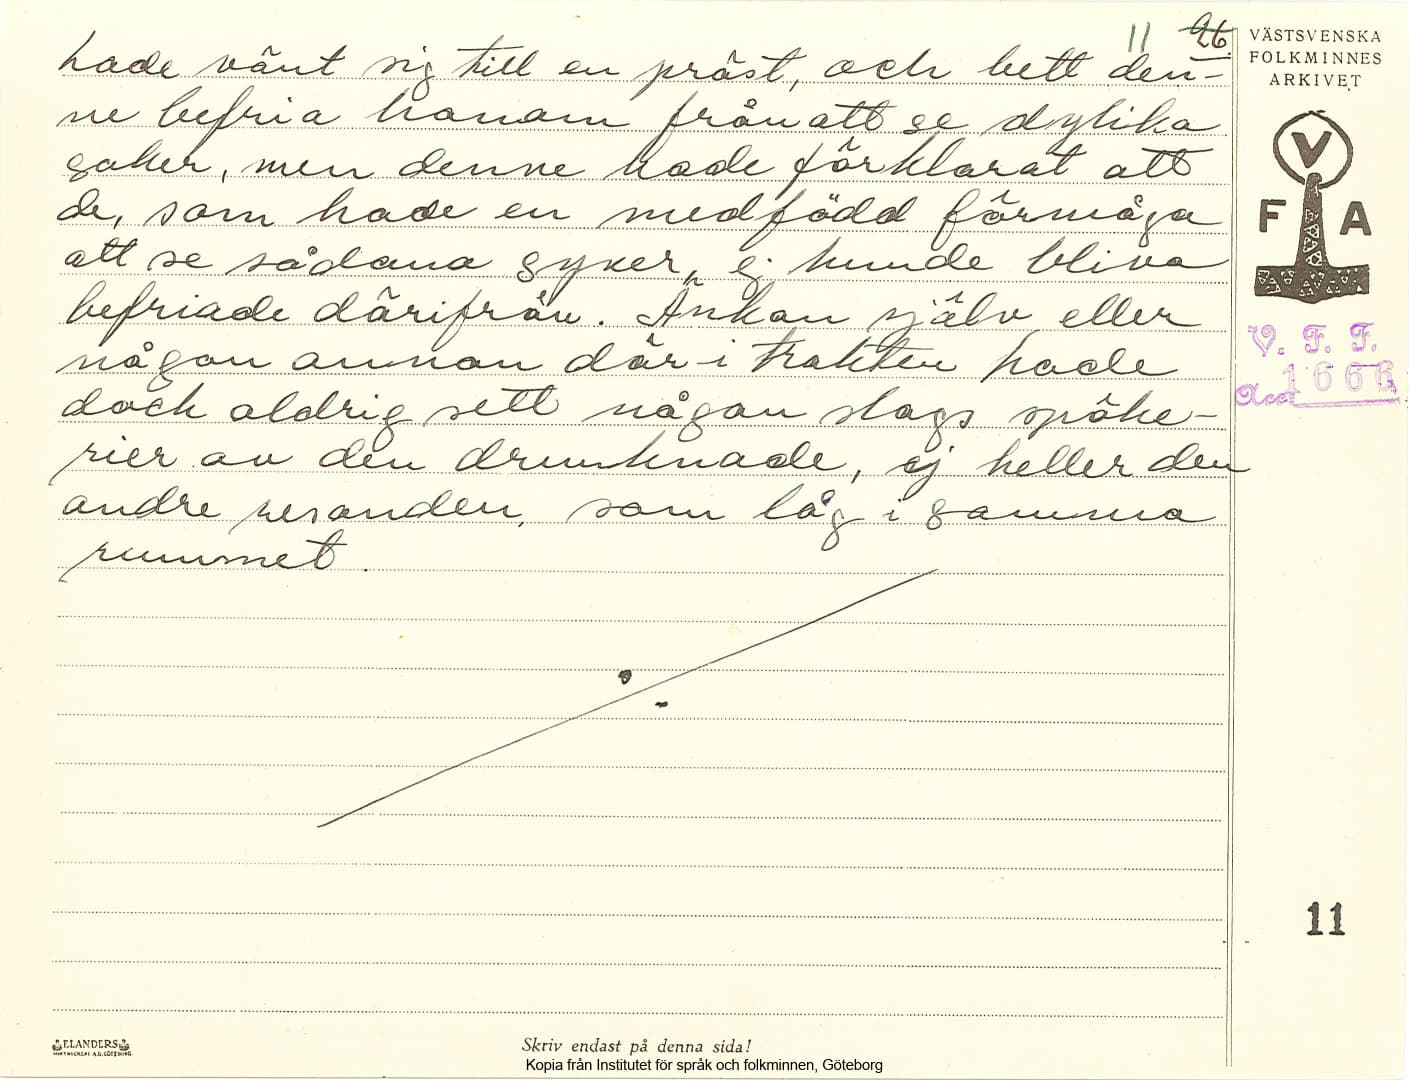 11 26
VÄSTSVENSKA
FOLKMINNES
ARKIVET
hade vänt sig till en präst, och bett den-
ne befria honom från att se dylika
saker, men denne hade förklarat att
de, som hade en medfödd förmåga
att se sådana syner, ej kunde bliva
befriade därifrån. Änkan själv eller
någon annan där i trakten hade
dock aldrig sett någon slags spöke-
rier av den drunknade, ej heller den
andre resanden, som låg i samma
rummet.
V
F A
V. F. F.
Acc: 1666
11
ELANDERS
Skriv endast på denna sida!
Kopia från Institutet för språk och folkminnen, Göteborg